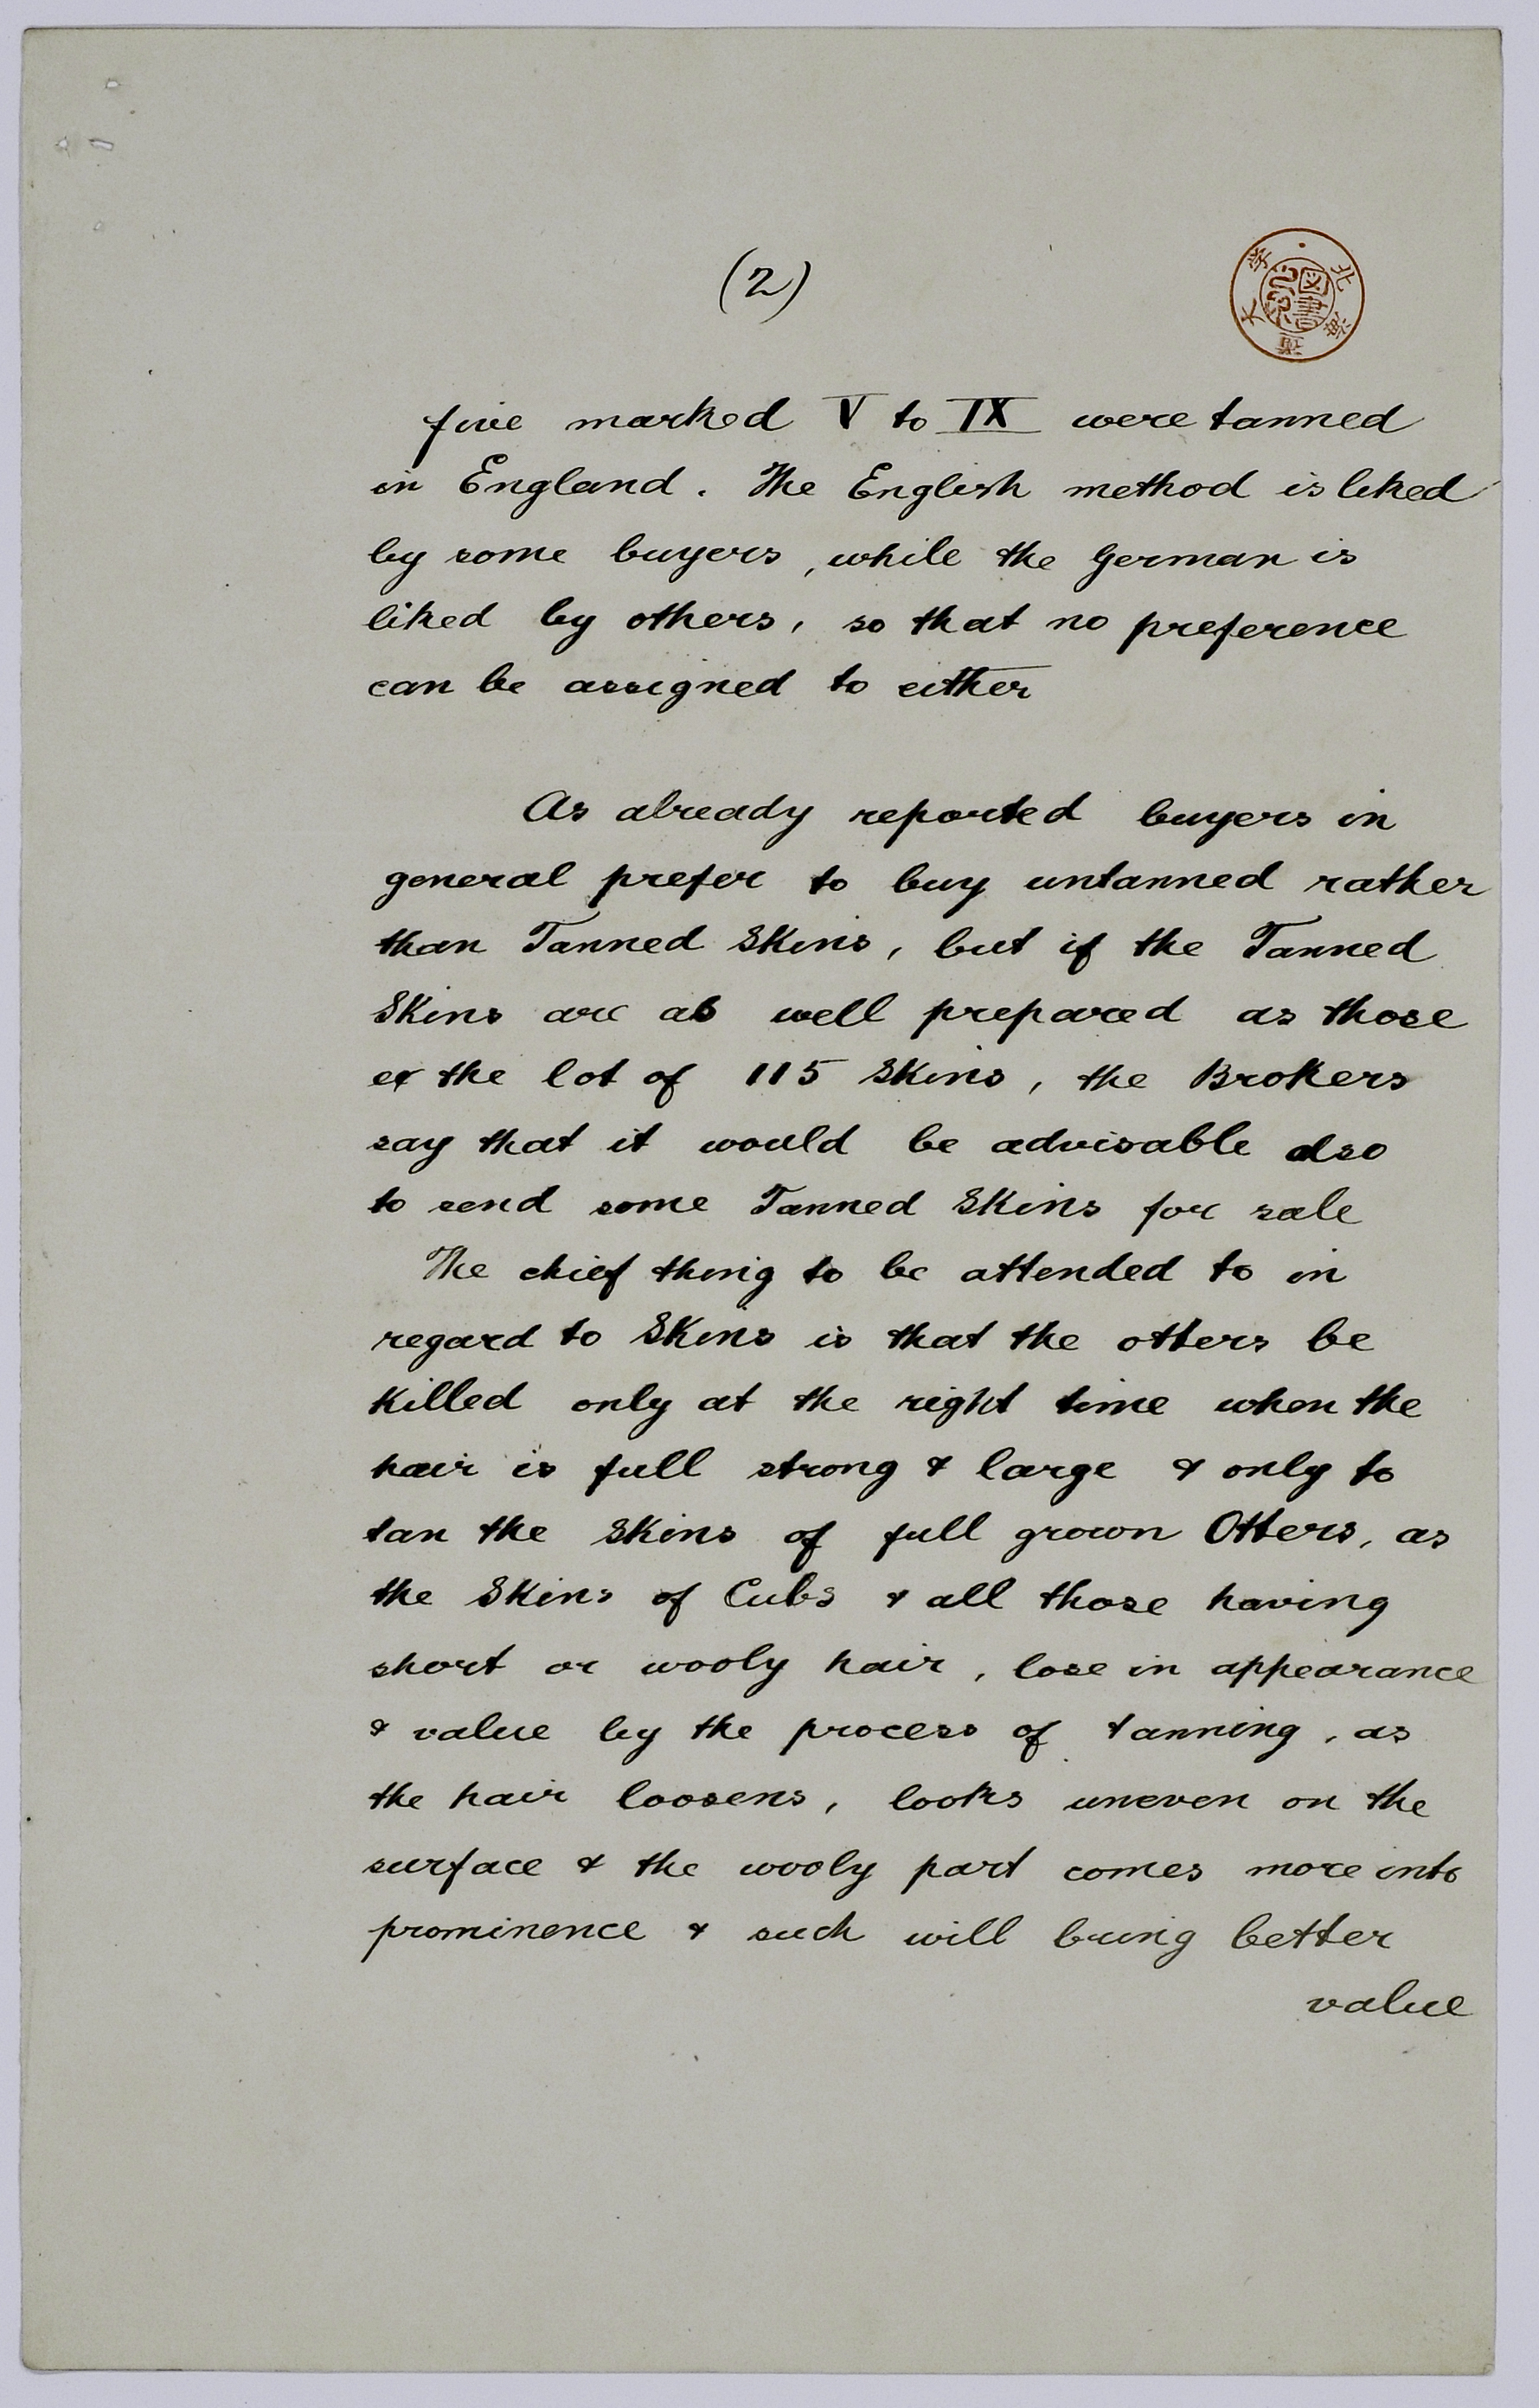 (2)
北海道大学
図書
five marked V to IX were tanned
in England. The English method is liked
by some buyers, while the German is
liked by others, so that no preference
can be assigned to either
As already reported buyers in
general prefer to buy untanned rather
than Tanned Skins, but if the Tanned
Skins are as well prepared as those
ex the lot of 115 Skins, the Brokers
say that it would be advisable also
to send some Tanned Skins for sale
The chief thing to be attended to in
regard to Skins is that the otters be
killed only at the right time when the
hair is full strong & large & only to
tan the Skins of full grown Otters, as
the Skins of Cubs & all those having
short or wooly hair, lose in appearance
& value by the process of tanning, as
the hair loosens, looks uneven on the
surface & the wooly part comes more into
prominence & such will bring better
value